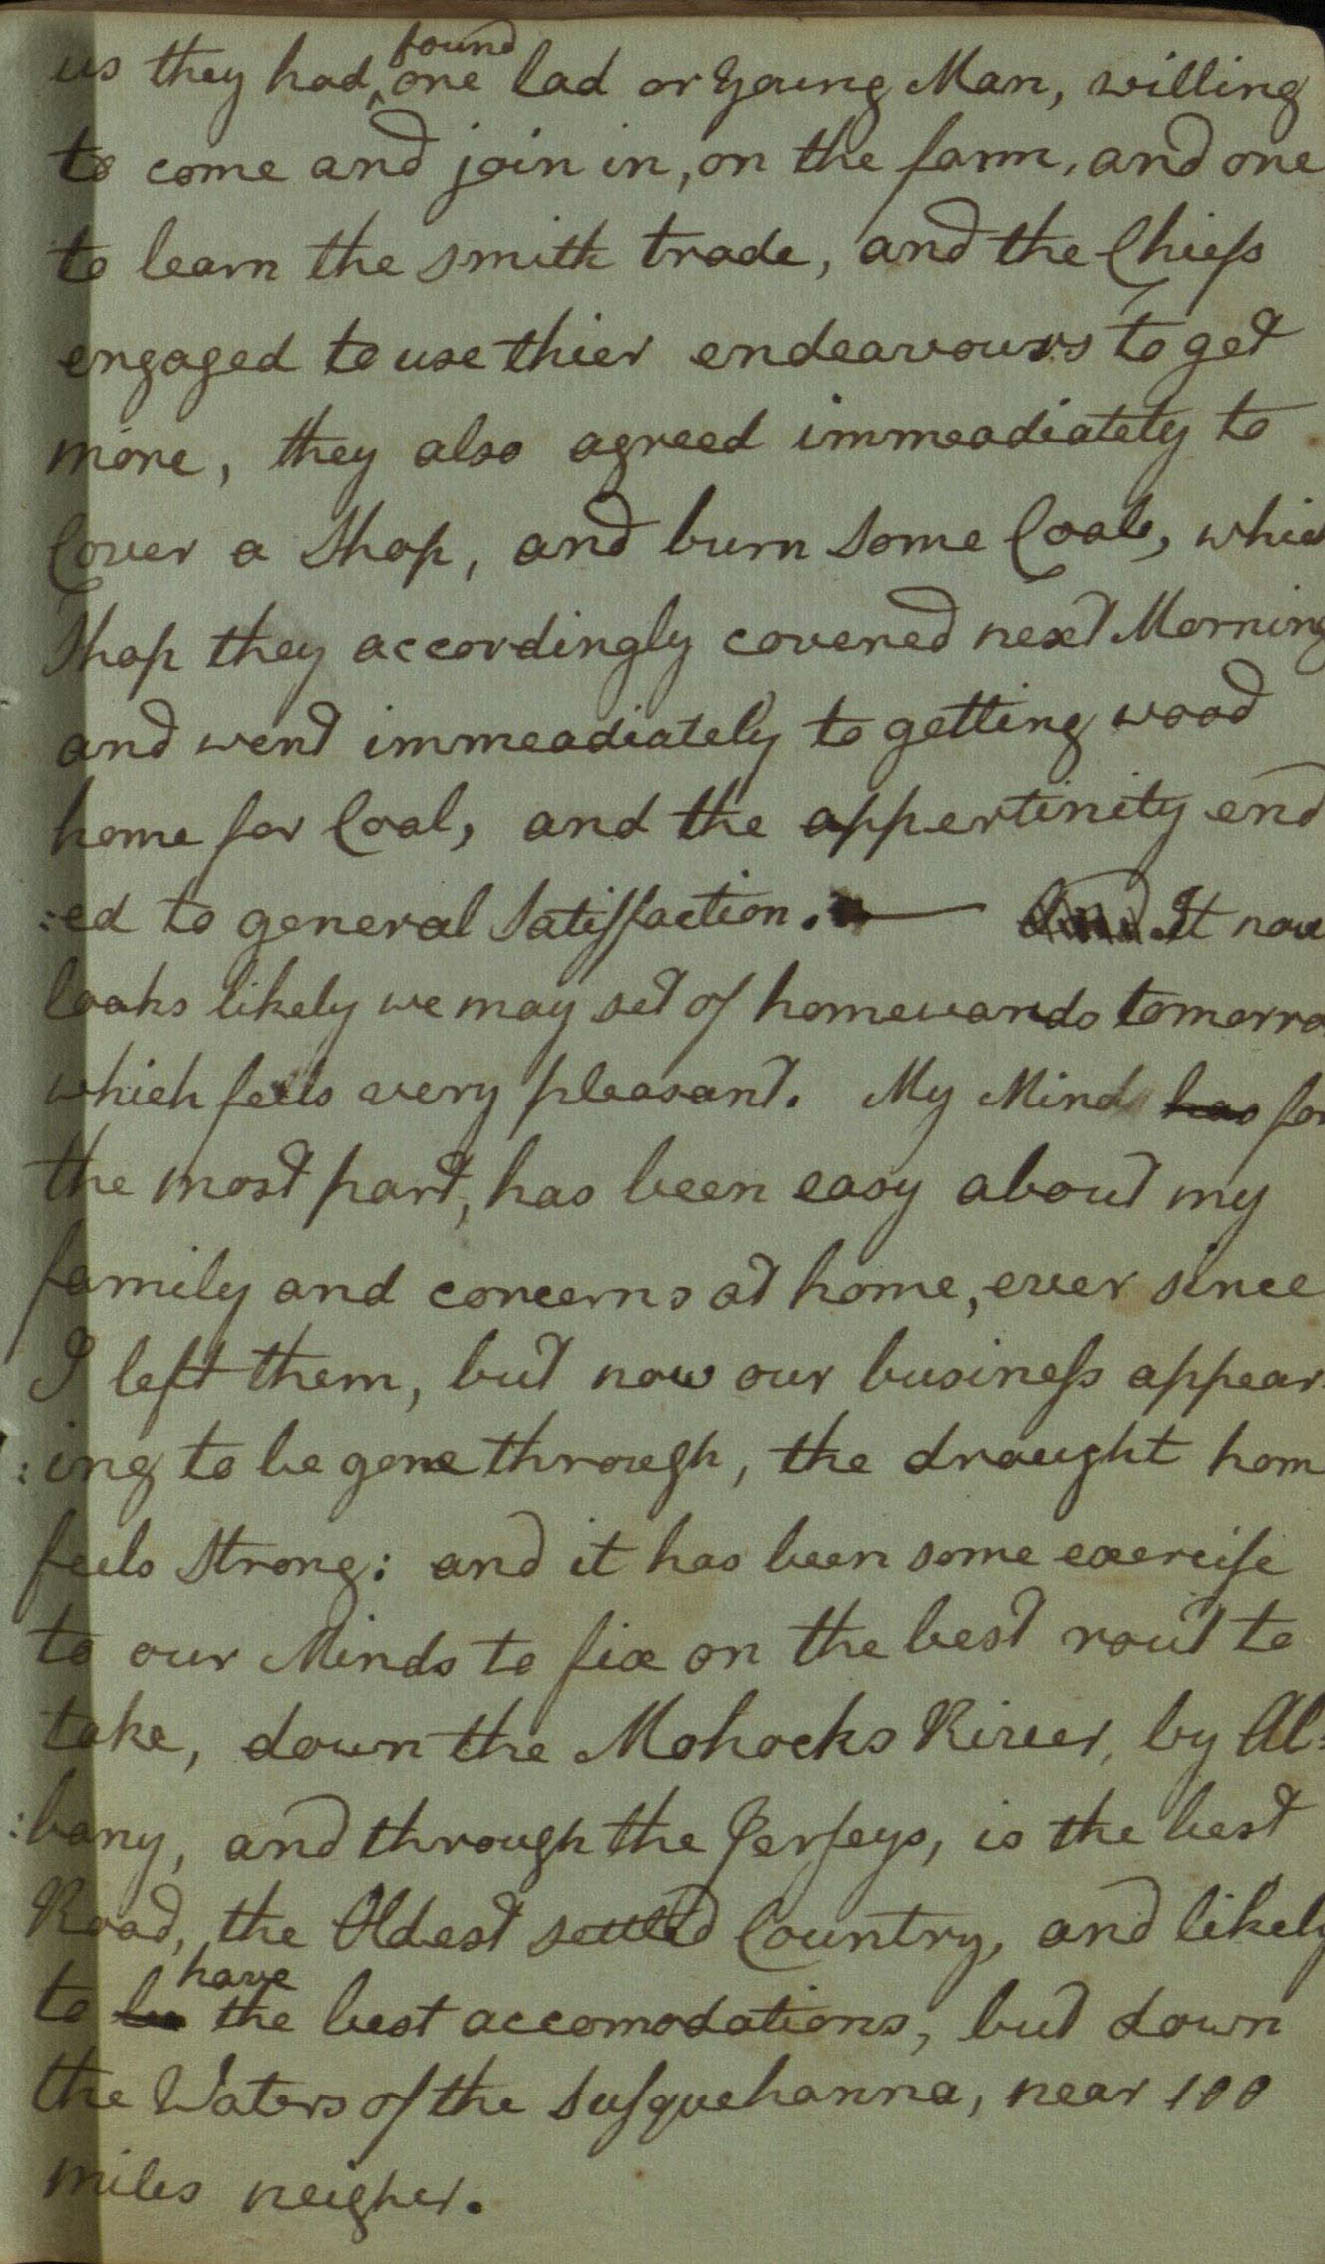 us they had found one lad or Young Man, willing
to come and join in, on the farm, and one
to learn the smith trade, and the Chiefs
engaged to use thier endeavours to get
more, they also agreed immeadiately to
Cover a Shop, and burn some Coals, whic
Shop they accordingly covered next Morning
and went immeadiately to getting wood
home for Coal, and the oppertinity end
:ed to general Satisfaction. — And It now
looks likely we may set of homewards tomorro
which feels very pleasant. My Mind has for
the most part, has been easy about my
family and concerns at home, ever since
I left them, but now our business appear
:ing to be gone through, the draught hom
feels strong: and it has been some exercise
to our Minds to fix on the best rout to
take, down the Mohocks River, by Al:
:bany, and through the Jerseys, is the best
Road, the Oldest settled Country, and likely
to be have the best accomodations, but down
the Waters of the Susquehanna, near 100
miles neigher.